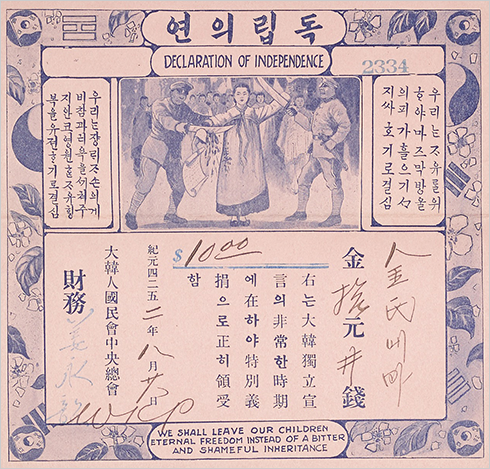 독립의연
DECLARATION OF INDEPENDENCE
2334
우리는 자유를위
하야 마즈막 방울
의 피가 흘으기
지 싸호기로 결심
우리는 쟝릐 자손의게
비참과 욕을
지안코 영원 자유
복을 유젼하기로 결심
$10.00
金拾元井錢
右는大韓獨立宣
言의非常한時期
에在하야特別義
捐으로正히領受
함
紀元四二五二年八月日
大韓人國民會中央總會
財務 姜永韶
WE SHALL LEAVE OUR CHILDREN
ETERNAL FREEDOM INSTEAD OF A BITTER
AND SHAMEFUL INHERITANCE